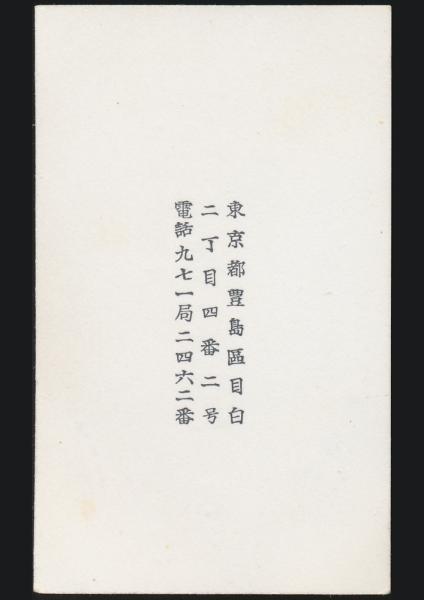 東京都豊島區目白
二丁目四番二号
電話九七一局二四六二番